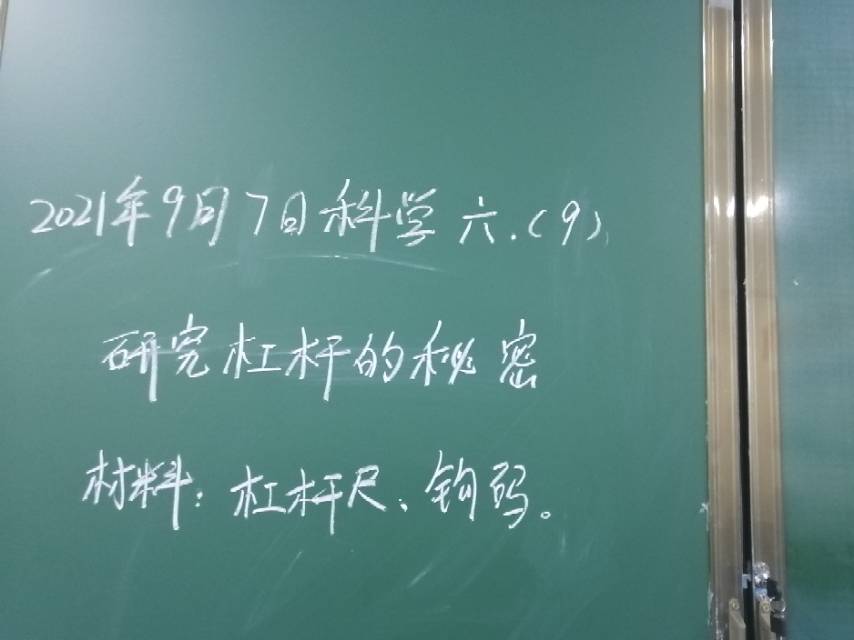 2021年9月7日科学六.(9)
研究杠杆的秘密
材料:杠杆尺、钩码。